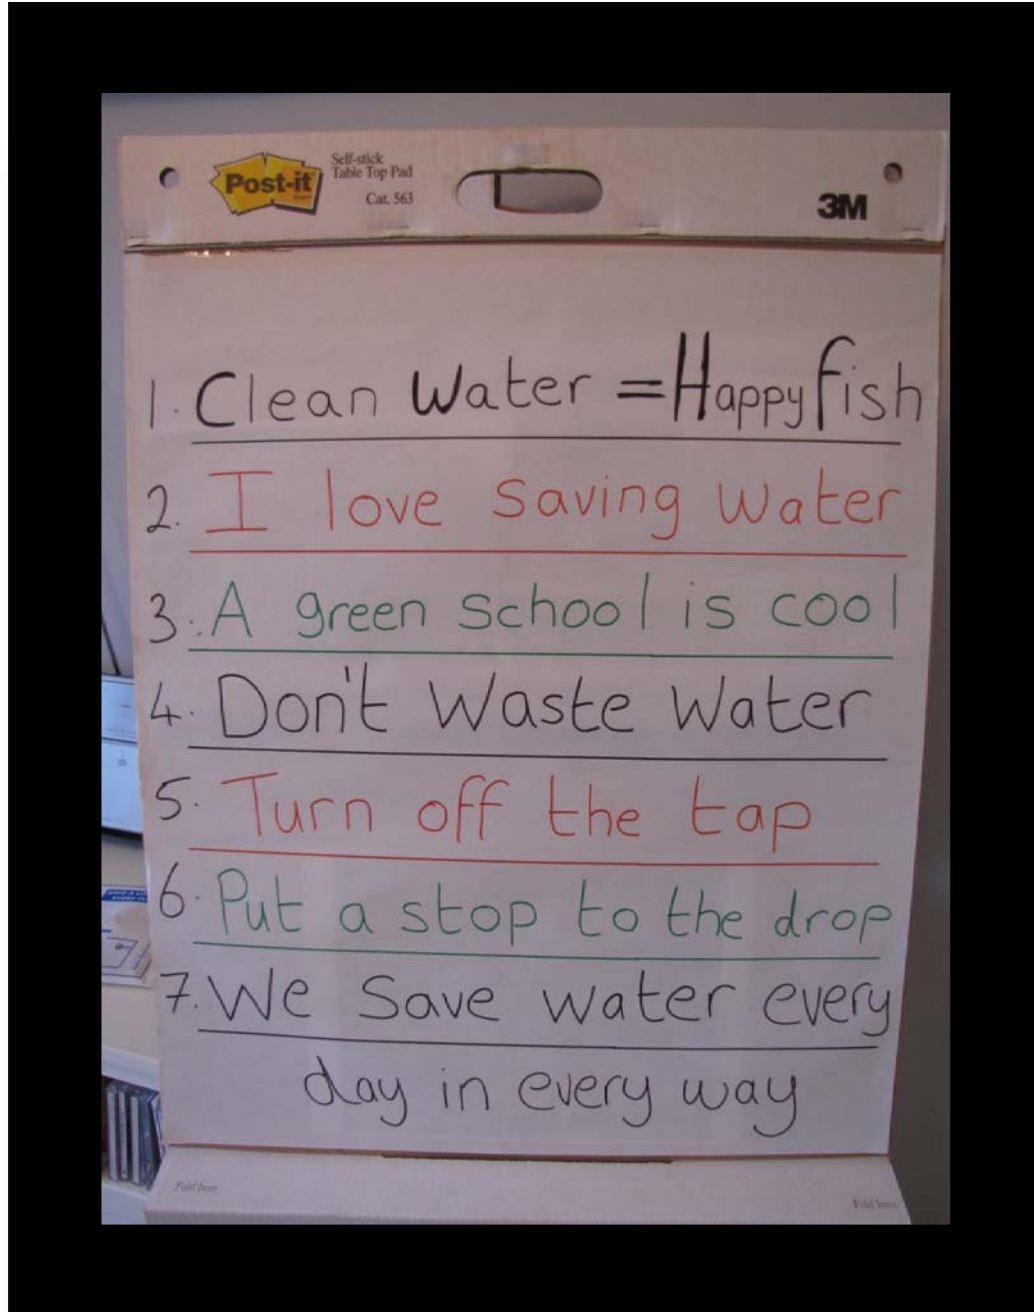 Post-it
Self-stick
Table Top Pad
Cat. 563
3M
1. Clean Water = Happy fish
2. I love saving water
3. A green school is cool
4. Don't waste water
5. Turn off the tap
6. Put a stop to the drop
7. We save water every
day in every way
Fold here
Fold here